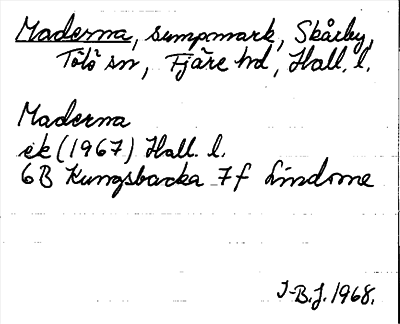 Maderna, sumpmark, Skårby,
Tölö sn, Fjäre hd, Hall. l.
Maderna
ek (1967) Hall. l.
6B Kungsbacka 7f Lindome
J-B.J. 1968.